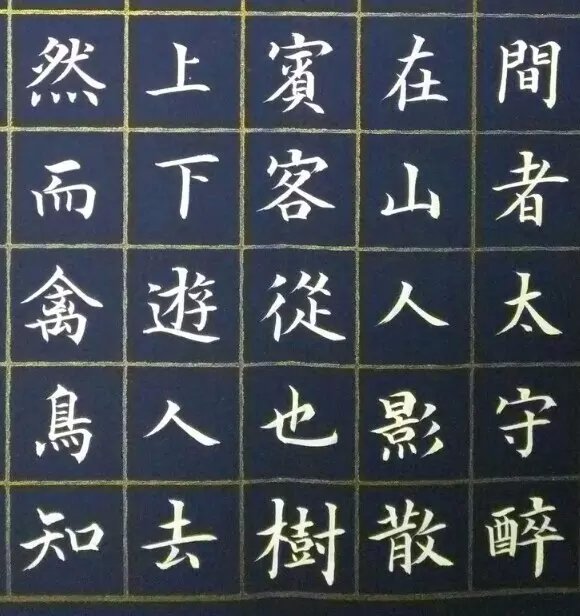 間者太守醉
在山人影散
賓客從也樹
上下遊人去
然而禽鳥知